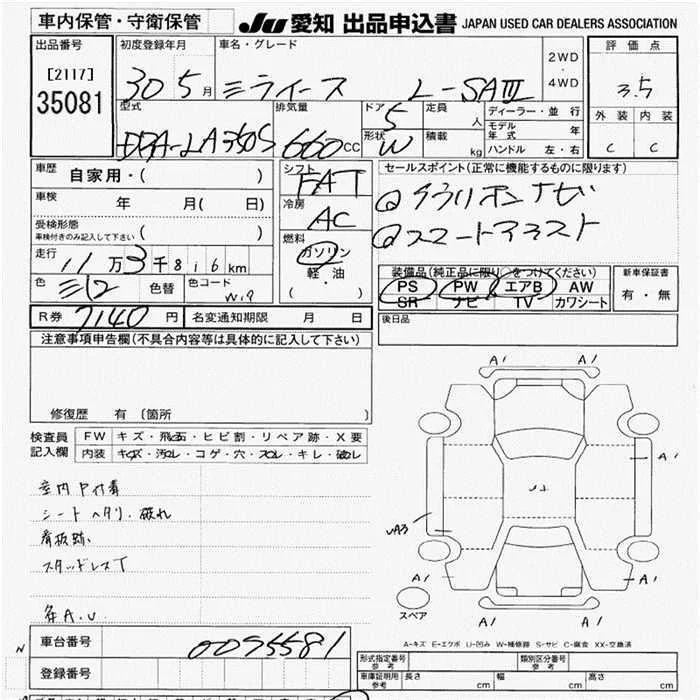 車内保管・守衛保管
JU 愛知 出品申込書 JAPAN USED CAR DEALERS ASSOCIATION
出品番号 初度登録年月 車名・グレード 2WD ・ 4WD 評価点
[2117] 35081 30 5月 ミライース L-SAⅢ 3.5
型式 排気量 ドア 5 定員 人 ディーラー・並行 外装 内装
モデル年式 年
DBA-LA350S 660CC 形状 W 積載 kg ハンドル 左・右 C C
車歴 自家用・( ) シフト FAT セールスポイント(正常に機能するものに限ります)
車検 年 月( 日) 冷房 AC
受検形態 車検付きのみ記入して下さい ( ) スマートアシスト
走行 11万3千816km 燃料 ガソリン 軽・油 ( )
装備品(純正品に限り○をつけてください) 新車保証書
色 色替 色コード W19 PS PW エアB AW 有・無
SR ナビ TV カワシート
R券 7140円 名変通知期限 月 日 後日品
注意事項申告欄(不具合内容等は具体的に記入して下さい)
修復歴 有 〔箇所 〕
検査員記入欄 FW キズ・飛石・ヒビ割・リペア跡・X要
内装 キズ・汚れ・コゲ・穴・スレ・キレ・破れ
A1 A1
A1
シート ヘタリ、破れ
看板跡
スタッドレスT
A3
A1 A1
スペア
A1 A1
各A.U.
A-キズ E-エクボ U-凹み W-補修跡 S-サビ C-腐食 XX-交換済
車台番号 0095581
登録番号
形式指定番号 参考 類別区分番号 参考
車庫証明用 参考 長さ cm 幅 cm 高さ cm